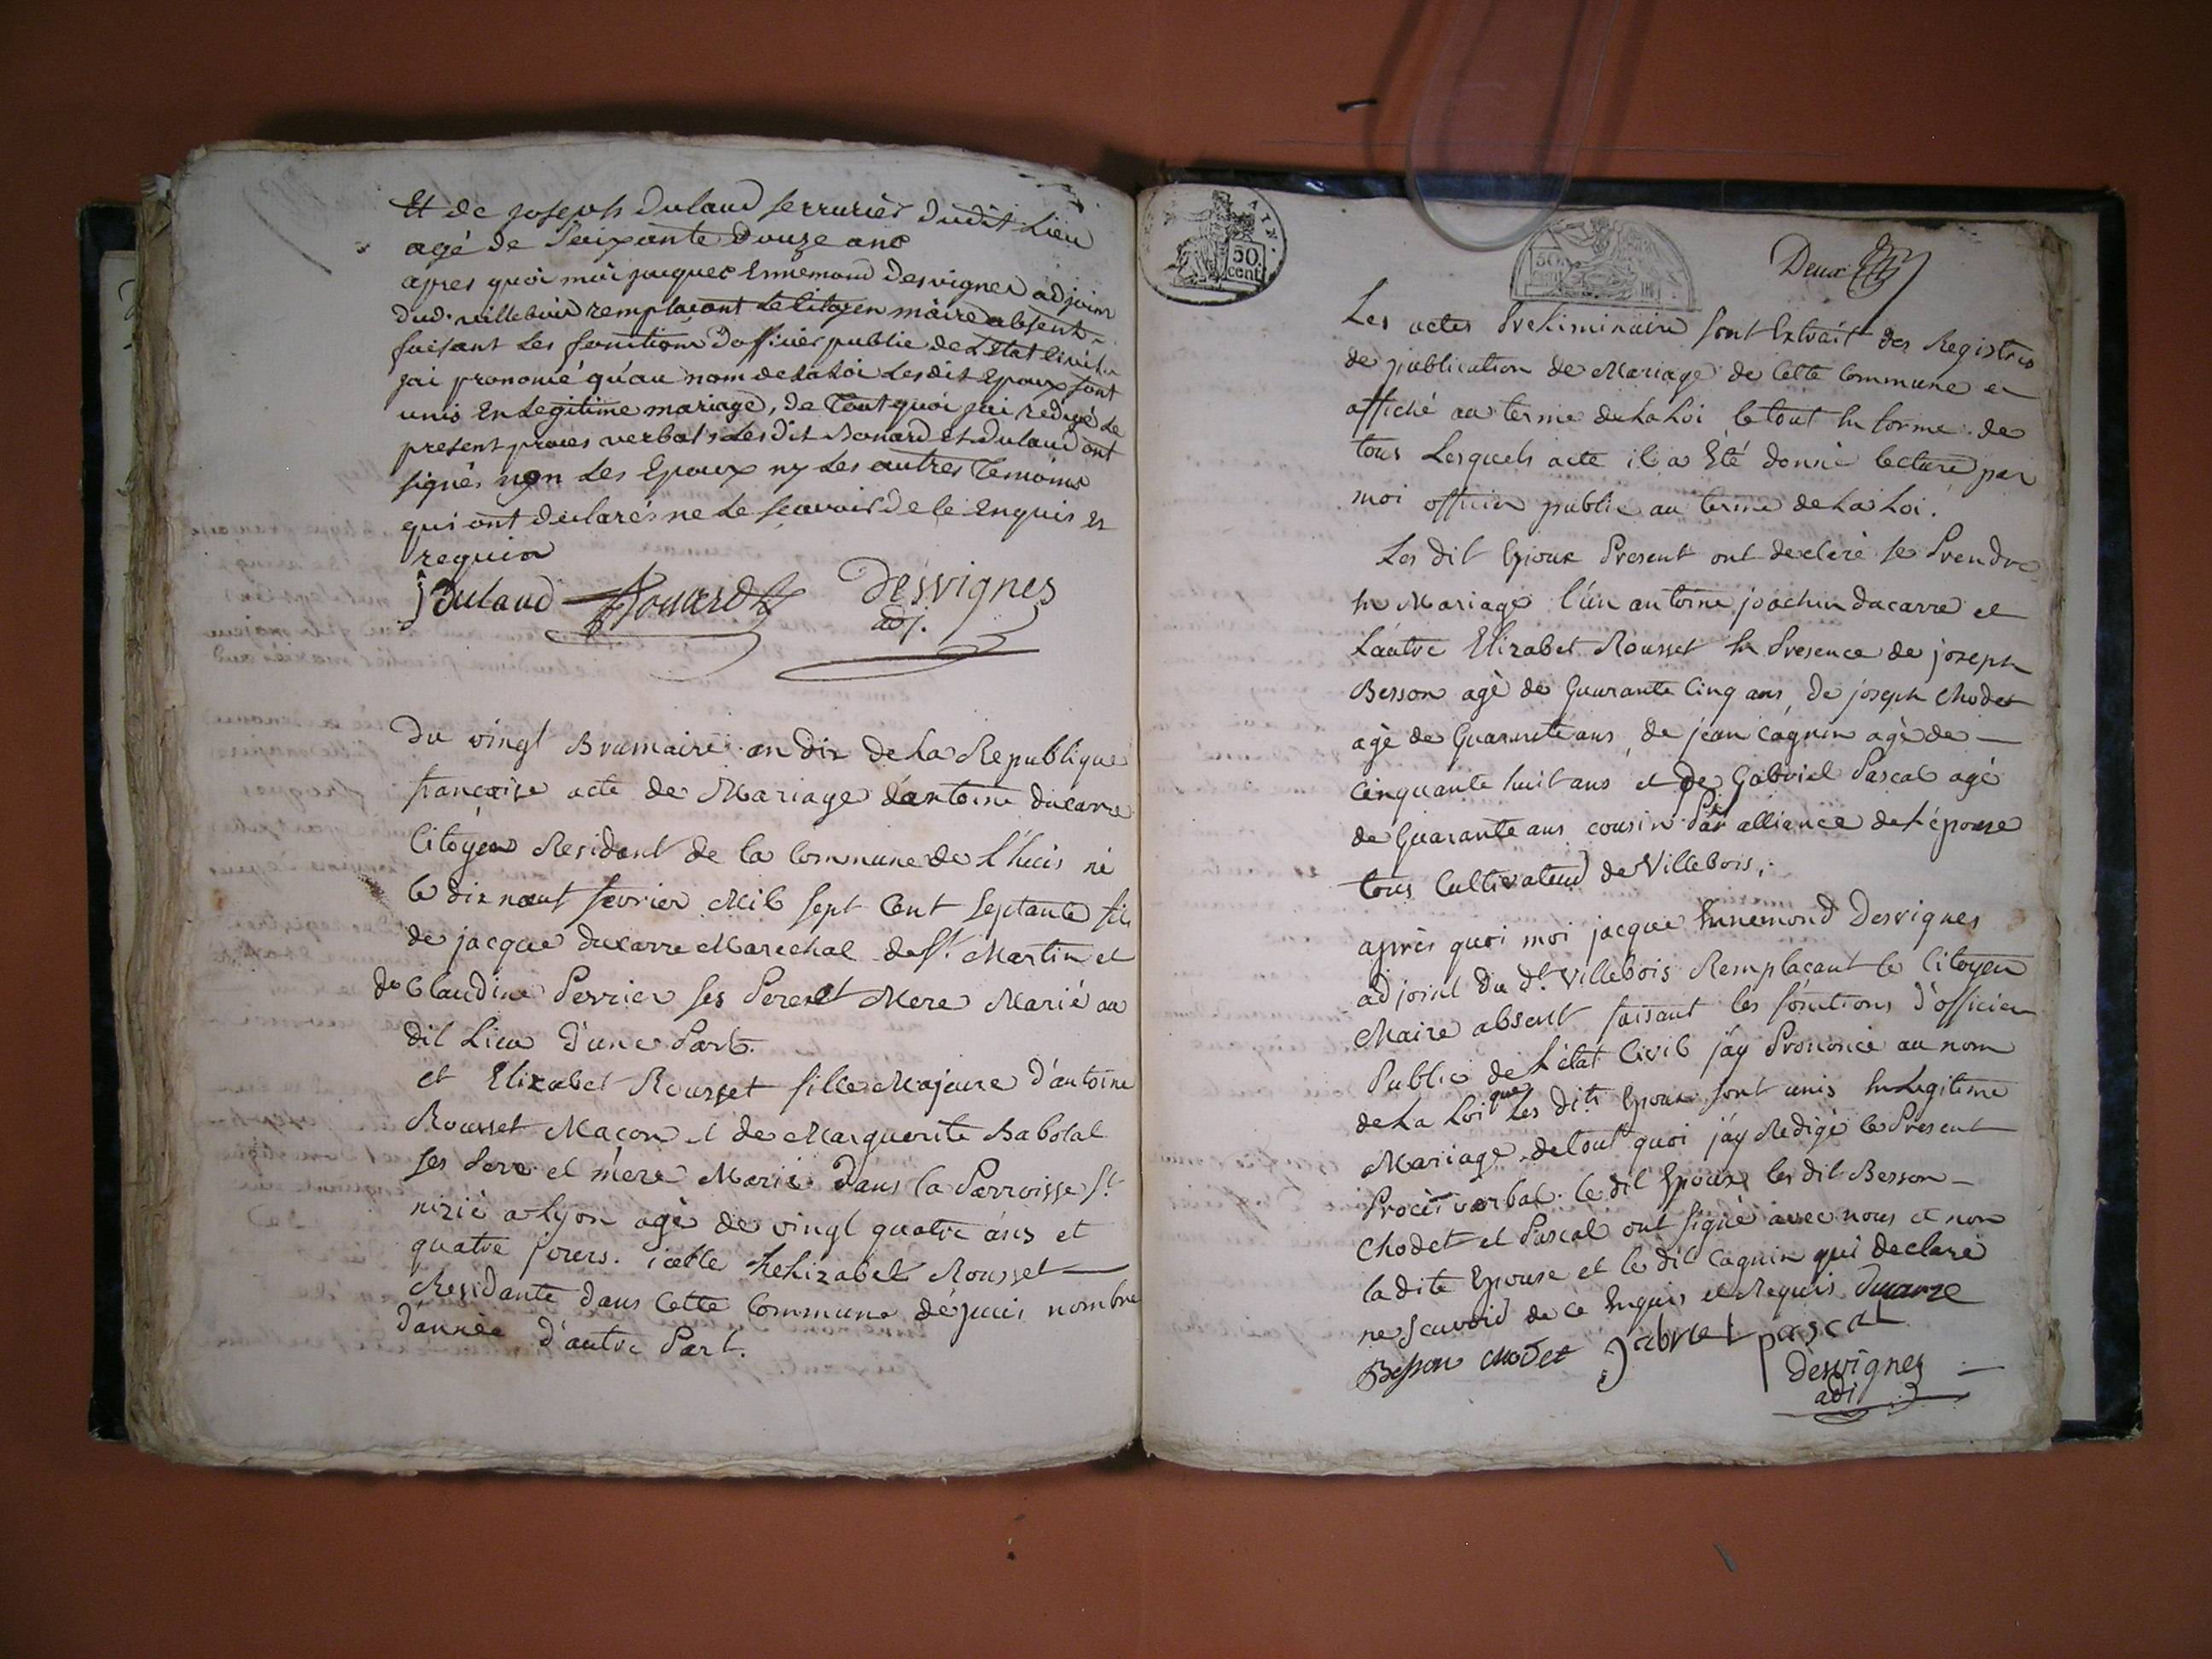 Et de joseph dulaud serrurier dudit Lieu
agé de Soixante Douze ans
apres quoi moi jacques Ennemond Desvignes adjoin
dud. villebois remplacant Le Citoyen maire absent
faisant Les fonctions D'officier public de L'Etat Civil
jai prononcé qu'au nom de La Loi Lesdit Epoux sont
unis En Legitime mariage, de Tout quoi jai redigé Le
present proces verbal, Lesdit Bonard et Dulaud ont
signés non Les Epoux ny Les autres Temoins
qui ont declarés ne Le scavoir de ce Enquis et
requis
J Dulaud Bonard Desvignes
adj.
Du vingt Brumaire an dix de La Republique
francoise acte de Mariage d'antoine ducarre
Citoyen Residant de la Commune de L'huis né
le dix neuf fevrier Mil sept Cent septante fils
de jacque ducarre Marechal de St. Martin et
de Claudine Perrier ses Pere et Mere Marié au
dit Lieu D'une Part.
et Elizabet Rousset fille Majeure d'antoine
Rousset Macon et de Marguerite Babolat
ses Pere et mere Marié Dans la Parroisse St.
nizié a Lyon agé de vingt quatre ans et
quatre jours. icelle Helizabet Rousset
Residante dans Cette Commune dépuis nombre
d'année d'autre Part.
AIN.
50 cent
50 cent
Deux
Les actes Preliminaire sont Extrait des Registres
de publication de Mariage de Cette Commune et
affiché au terme de La Loi le tout En forme de
tous Lesquels acte il a Eté donné lecture par
moi officier public au terme de La Loi.
Les dit Epoux Present ont declaré se Prendre
En Mariage l'un antoine joachin ducarre et
L'autre Elizabet Rousset En Presence de joseph
Besson agé de Quarante Cinq ans, de joseph Chodet
agé de Quarante ans, de jean Cagnin agé de
Cinquante huit ans et de Gabriel Pascal agé
de Quarante ans cousin Par alliance de L'épouse
tous Cultivateur de Villebois,
après quoi moi jacque Ennemond Desvignes
adjoint du dt. Villebois Remplacant le Citoyen
Maire absent faisant les fonctions d'officier
Public de L'état Civil j'ay Prononcé au nom
de La Loi que Les dits Epoux sont unis En Legitime
Mariage. de tout quoi j'ay Redigé le Present
Procès verbal. le dit Epoux les dit Besson
Chodet et Pascal ont signé avec nous et non
la dite Epouse et le dit Cagnin qui declaré
ne scavoir de ce Enquis et Requis Ducarre
Besson chodet gabriel pascal
Desvignes
adj